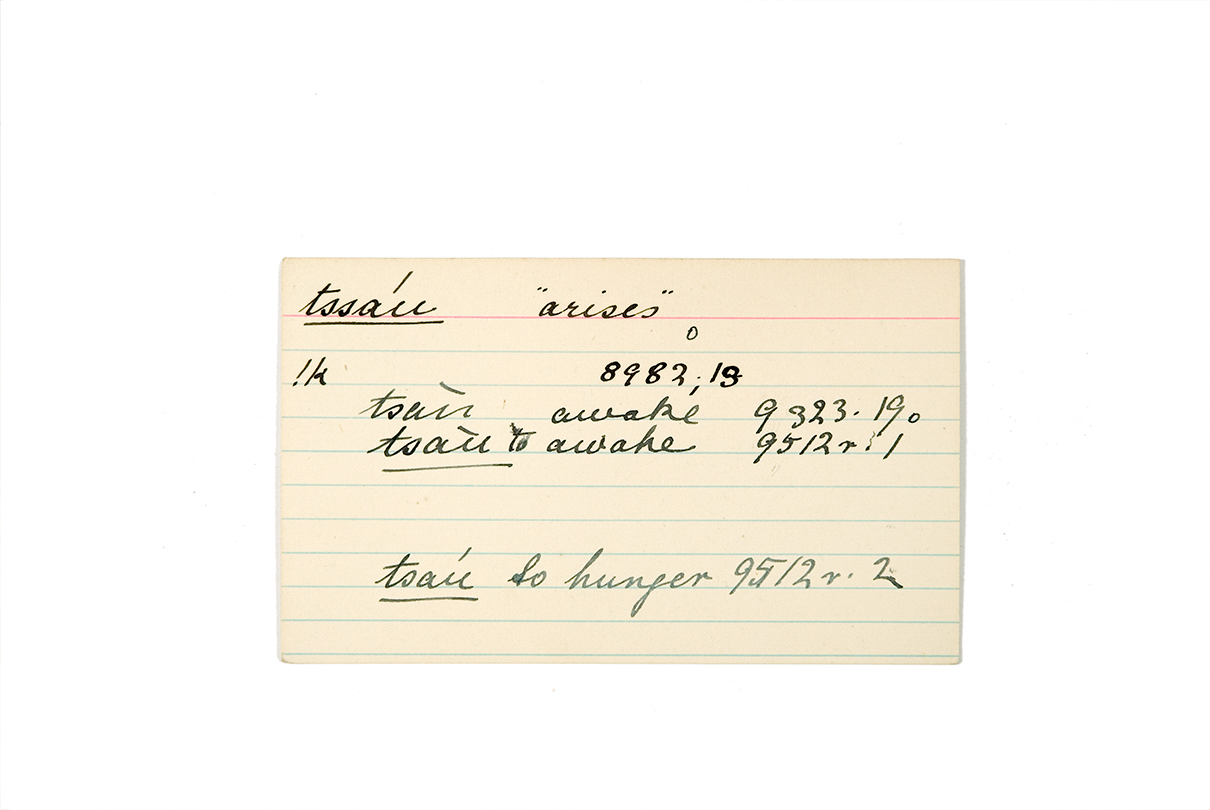 tssáu "arises"
o
!k 8982; 19
tsàu awake 9323. 19o
tsàu to awake 9512r. 1
tsáu to hunger 9512r. 2